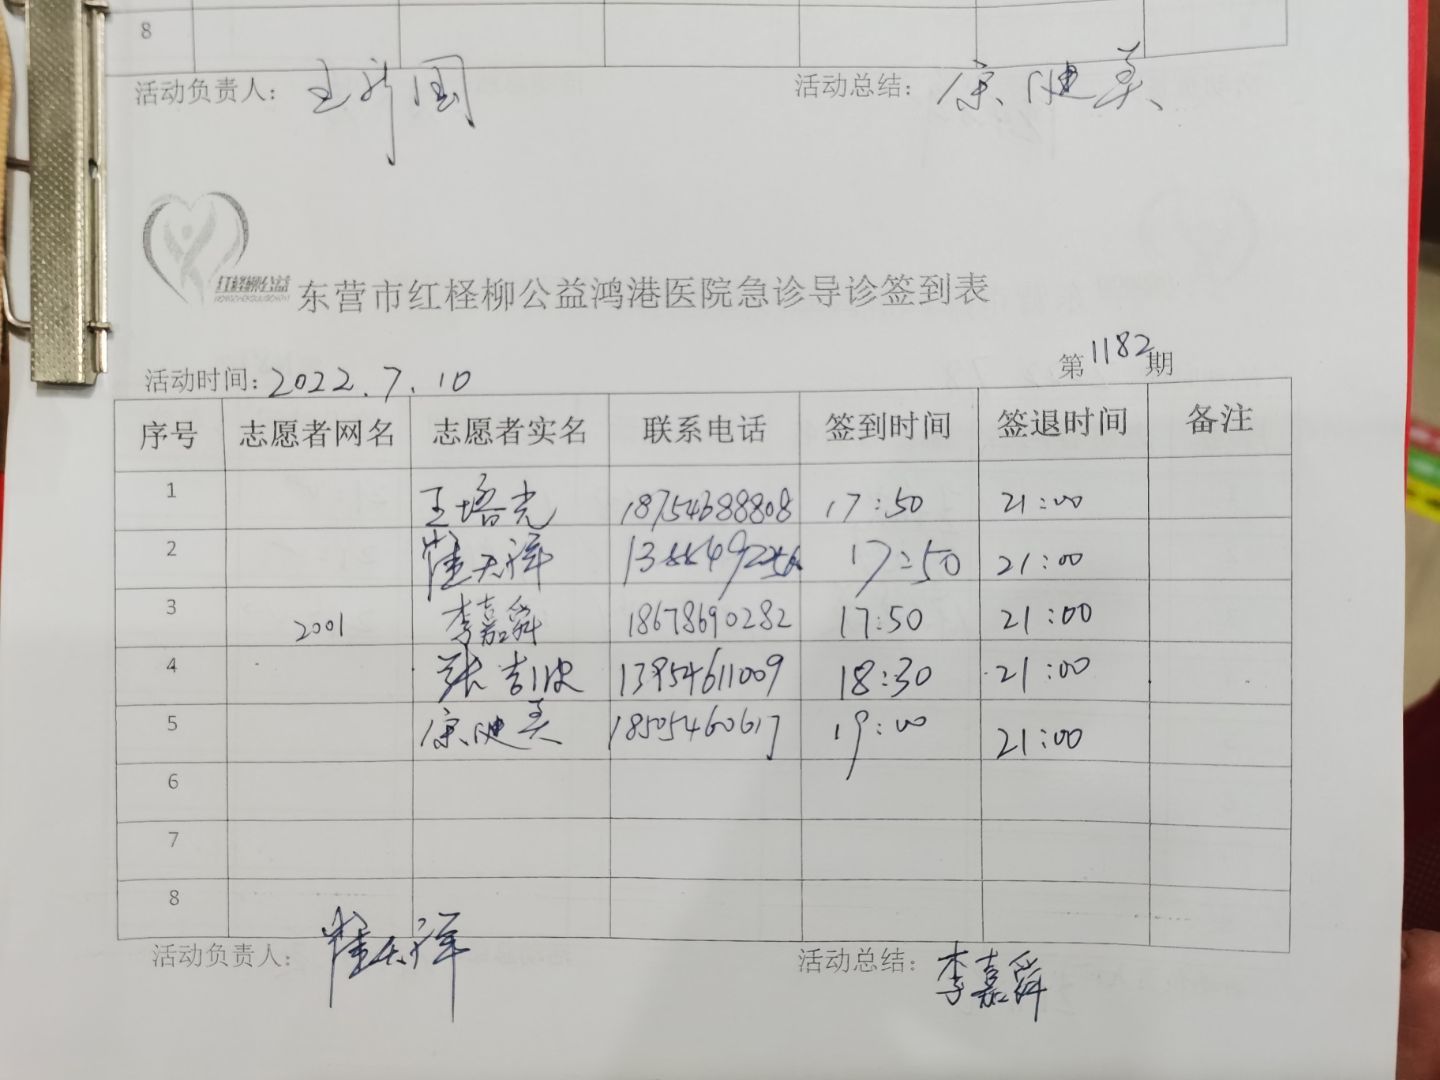 8
活动负责人： 王新国 活动总结： 康健美
红柽柳公益
东营市红柽柳公益鸿港医院急诊导诊签到表
活动时间: 2022.7.10 第1182期
序号 志愿者网名 志愿者实名 联系电话 签到时间 签退时间 备注
1 王培光 18754688808 17:50 21:00
2 崔天祥 17:50 21:00
3 2001 李嘉舜 18678690282 17:50 21:00
4 张吉波 13954611009 18:30 21:00
5 康健美 18505460617 19:00 21:00
6
7
8
活动负责人： 崔天祥 活动总结： 李嘉舜